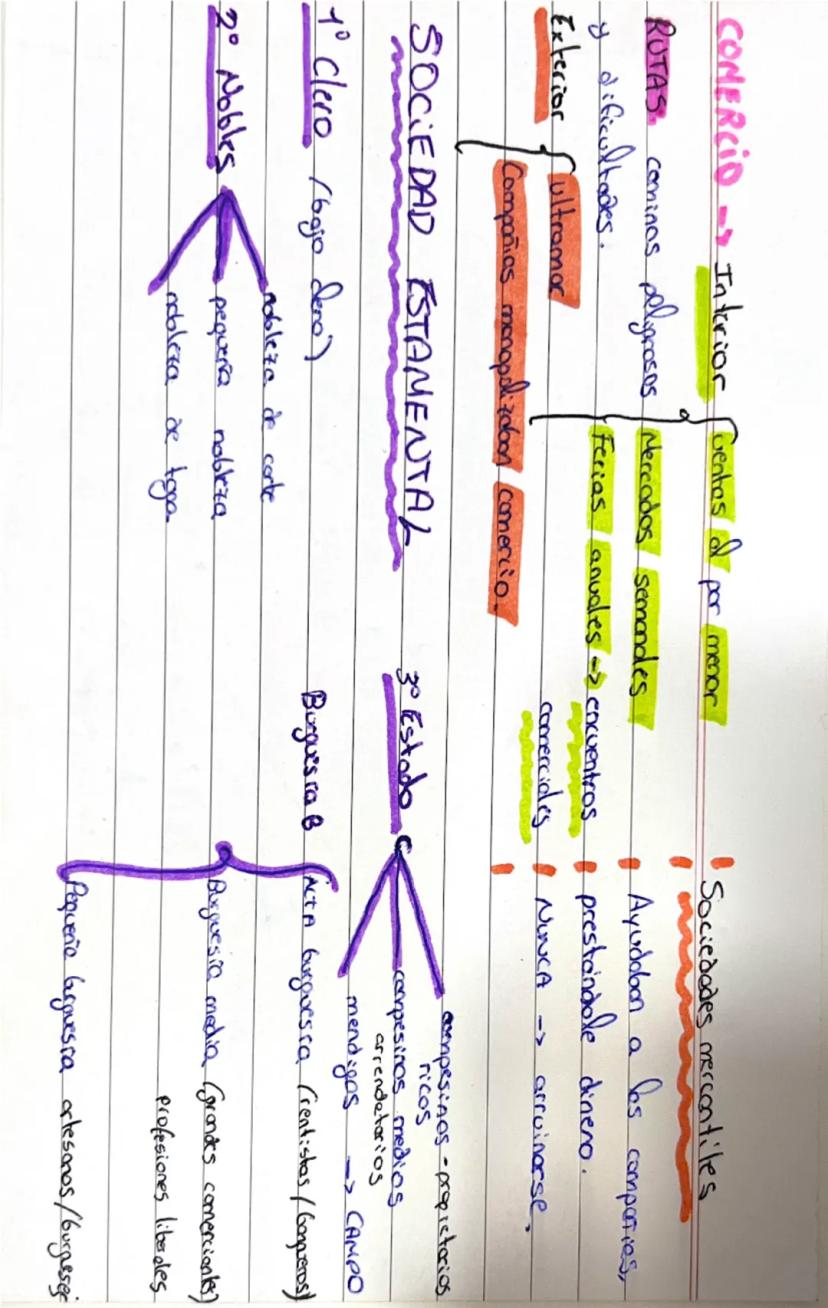 COMERCIO -> Interior
ventas al por menor
Mercados semanales
Ferias anuales -> encuentros
comerciales
RUTAS. caminos peligrosos
y dificultades.
Exterior
ultramar
Compañías monopolizaban comercio.
Sociedades mercantiles
Ayudaban a las compañías,
prestándole dinero.
NUNCA -> arruinarse.
SOCIEDAD ESTAMENTAL
1º Clero (bajo clero)
2º Nobles
nobleza de corte
pequeña nobleza
nobleza de toga
3º Estado
campesinos-propietarios
ricos
campesinos medios
arrendatarios
mendigos -> CAMPO
Burguesía B
ALTA burguesía (rentistas/banqueros)
Burguesía media (grandes comerciantes)
profesiones liberales
Pequeña burguesía artesanos/